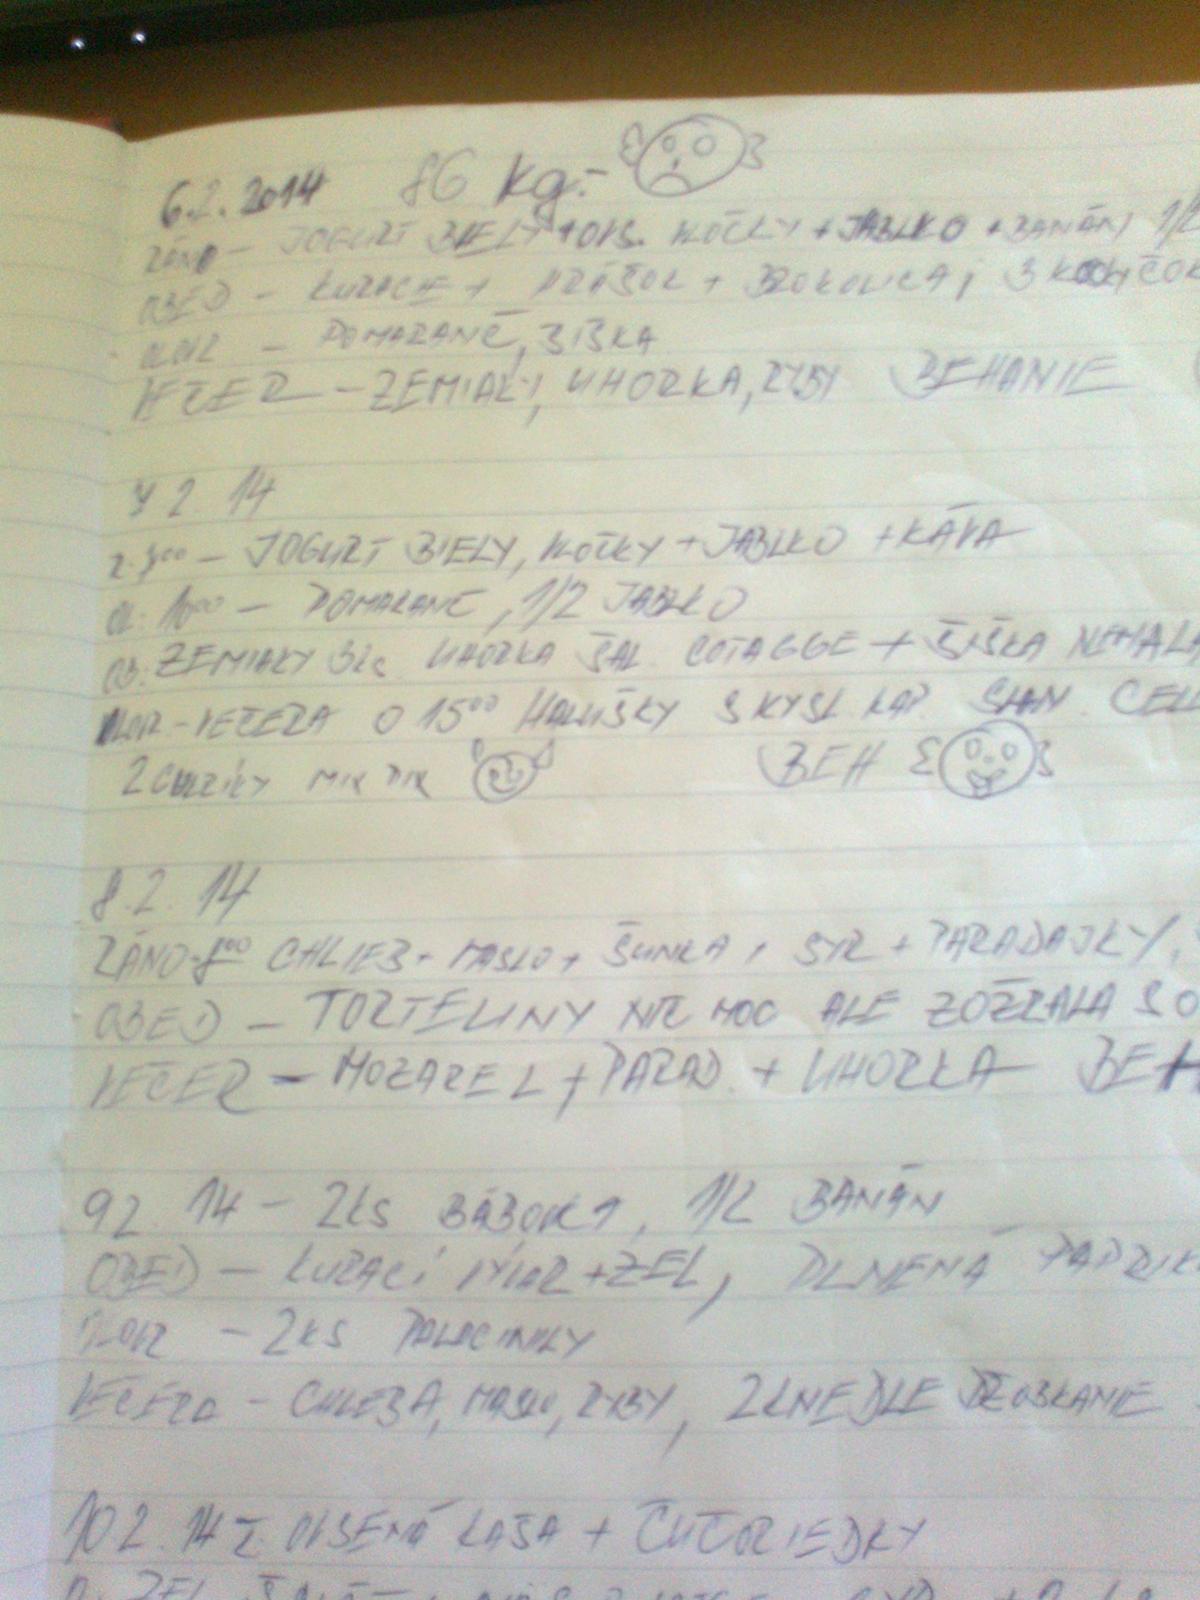 6.2.2014 86 kg.-
RÁNO - JOGURT BIELY + OVS. VLOČKY + JABLKO + BANÁN 1/2
OBED - KURACIE + HRÁŠOK + BROKOLICA, 3
OLOV. - POMARANČ, ŠIŠKA
VEČER - ZEMIAKY, UHORKA, RYBY BEHANIE
7 2. 14
R. 7⁰⁰ - JOGURT BIELY, VLOČKY + JABLKO + KÁVA
OL. 10⁰⁰ - POMARANČ, 1/2 JABLKO
OB. ZEMIAKY 3ks UHORKA ŠAL. COTAGGE + ŠIŠKA
OLOV - VEČERA O 15⁰⁰ HALUŠKY S KYSL. KAP.
2 BEH
8.2. 14
RÁNO - 8⁰⁰ CHLIEB - MASLO + ŠUNKA + SYR + PARADAJKY,
OBED - TORTELINY NIČ MOC ALE ZOŽRALA SO
VEČER - MOZAREL + PARAD. + UHORKA BEH
9 2. 14 - 2ks BÁBOVKY, 1/2 BANÁN
OBED - KURACÍ VÝVAR + ZEL, PLNENÁ PAPRIK
OLOV - 2KS PALACINKY
VEČERA - CHLEBA, MASLO, RYBY, 2 KNEDLE
10 2. 14 - OVSENÁ KAŠA + ČUČORIEDKY